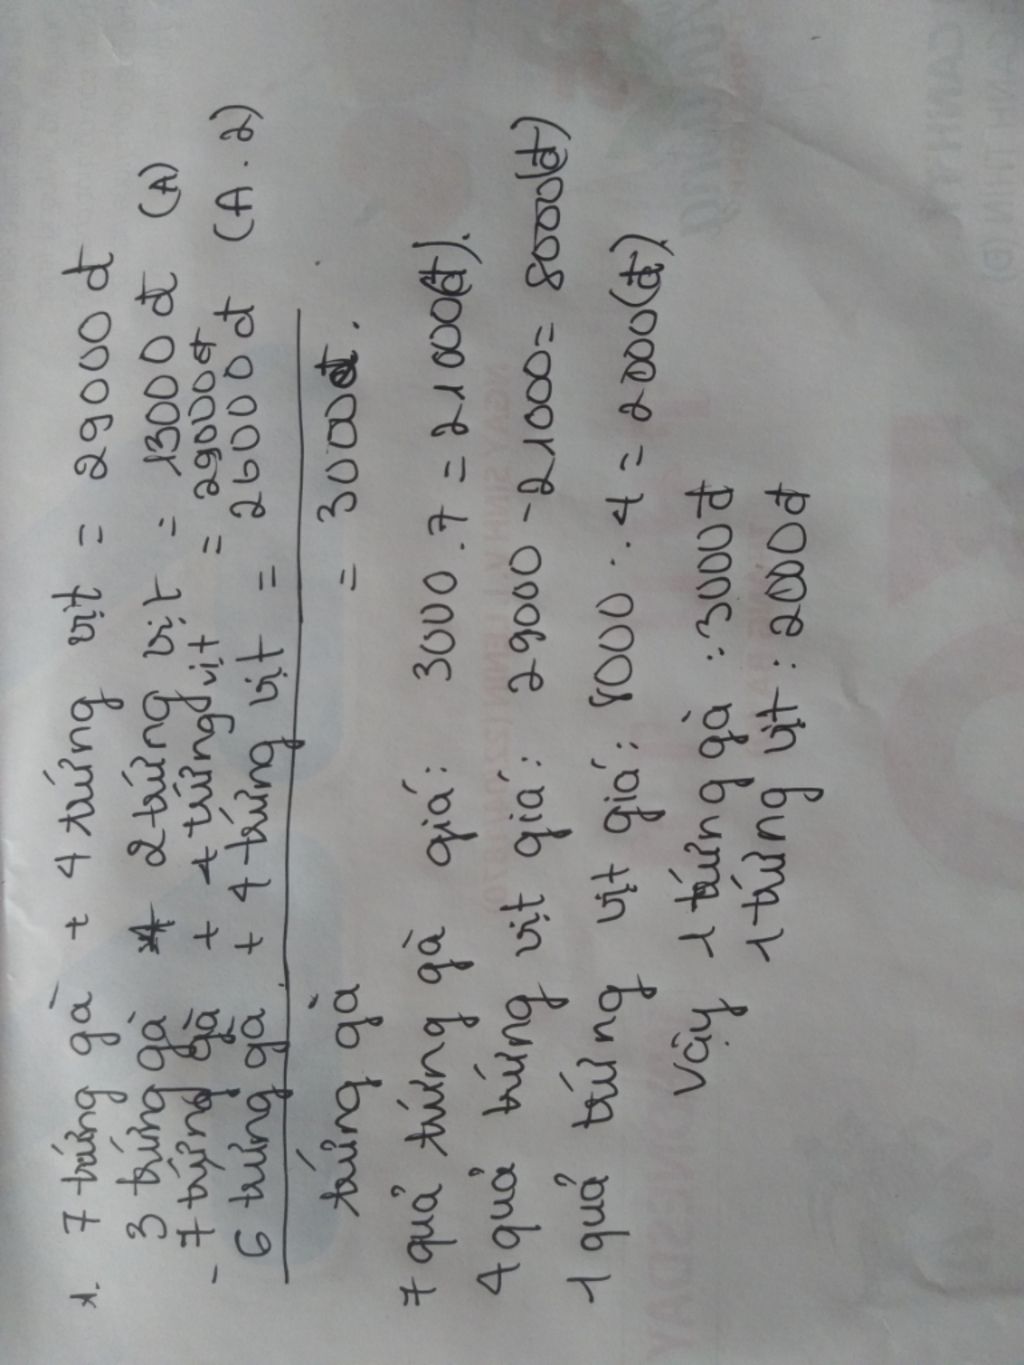 1. 7 trứng gà + 4 trứng vịt = 29000 đ
3 trứng gà + 2 trứng vịt = 13000 đ (A)
- 7 trứng gà + 4 trứng vịt = 29000 đ
6 trứng gà + 4 trứng vịt = 26000 đ (A . 2)
trứng gà = 3000đ.
7 quả trứng gà giá: 3000 . 7 = 21000(đ).
4 quả trứng vịt giá: 29000 - 21000 = 8000(đ)
1 quả trứng vịt giá: 8000 : 4 = 2000(đ).
Vậy 1 trứng gà : 3000đ
1 trứng vịt : 2000đ